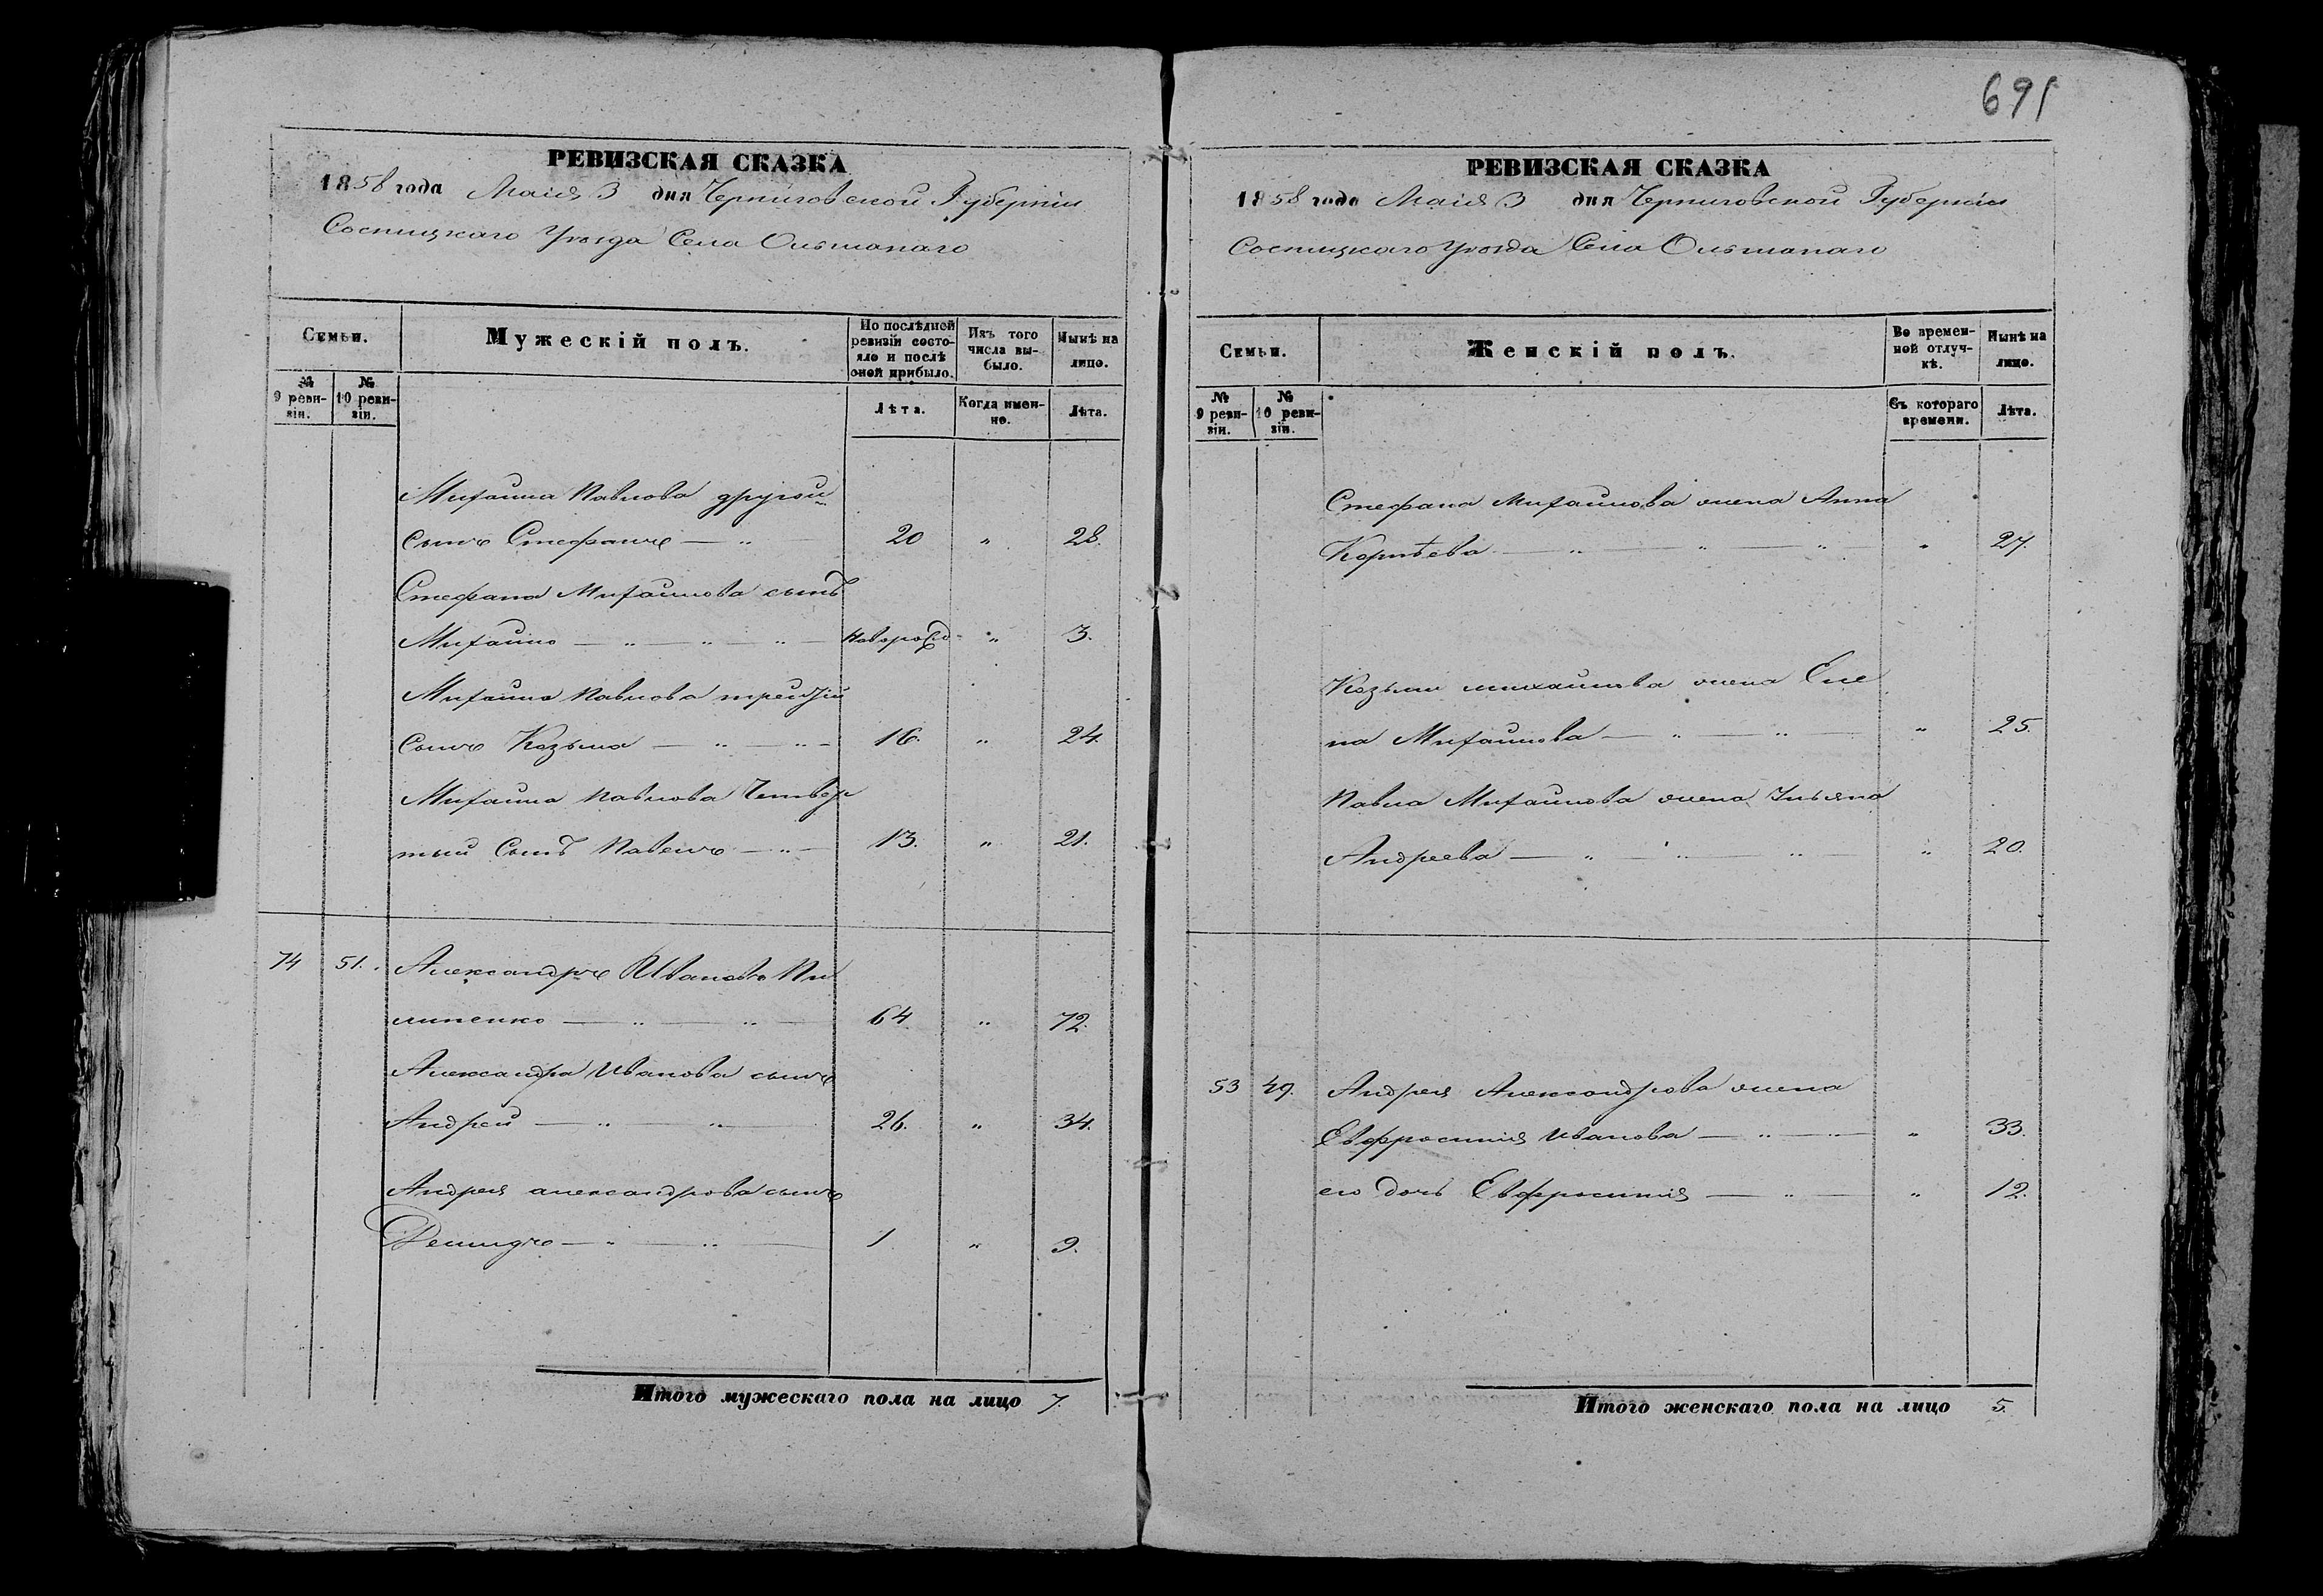 691
РЕВИЗСКАЯ СКАЗКА
1858 года Маія 3 дня Черниговской Губерніи
Сосницкаго Уѣзда Села Ольшанаго
Семьи.
Мужескій полъ.
По послѣдней ревизіи состояло и послѣ оной прибыло.
Изъ того числа выбыло.
Нынѣ на лицо.
№ 9 ревизіи.
№ 10 ревизіи.
Лѣта.
Когда именно.
Лѣта.
Михаила Павлова другой
Сынъ Стефанъ — " — 20 " 28.
Стефана Михайлова сынъ
Михайло — " — " — " — Новорожд- " 3.
Михаила Павлова третій
Сынъ Козьма — " — " — 16. " 24.
Михаила Павлова Четвер
тый Сынъ Павелъ — " — 13. " 21.
74 51. Александръ Ивановъ Пи
липенко — " — " — 64 " 72.
Александра Иванова сынъ
Андрей — " — " — 26. " 34.
Андрея александрова сынъ
Демидъ — " — " — 1. " 9.
Итого мужескаго пола на лицо 7.
РЕВИЗСКАЯ СКАЗКА
1858 года Маія 3 дня Черниговской Губерніи
Сосницкаго Уѣзда Села Ольшанаго
Семьи.
Женскій полъ.
Во временной отлучкѣ.
Нынѣ на лицо.
№ 9 ревизіи.
№ 10 ревизіи.
Съ котораго времени.
Лѣта.
Стефана Михайлова жена Анна
Корнѣева — " — " — " — " 27.
Козьмы михайлова жена Еле
на Михайлова — " — " — " 25.
Павла Михайлова жена Ульяна
Андреева — " — " — " — " 20.
53 49. Андрея Александрова жена
Евфросинія Иванова — " — " — " 33.
его дочь Евфросинія — " — " 12.
Итого женскаго пола на лицо 5.